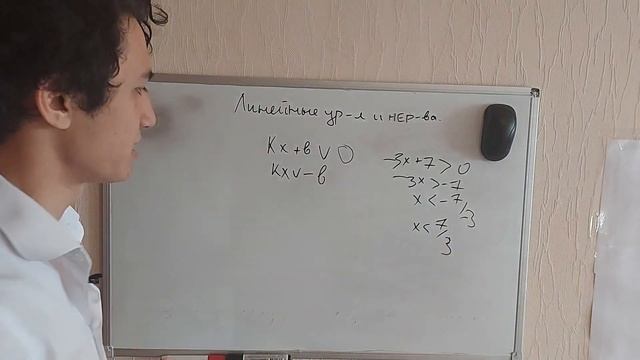 Линейные ур-я и нер-ва.
Kx+b ∨ 0
Kx ∨ -b
-3x+7>0
-3x>-7
x<-7/-3
x<7/3